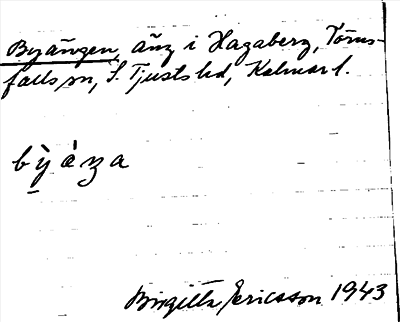 Byängen, äng i Hagaberg, Törns-
falls sn, S. Tjusts hd, Kalmar l.
bỳ áŋa
Birgitta Ericsson 1943